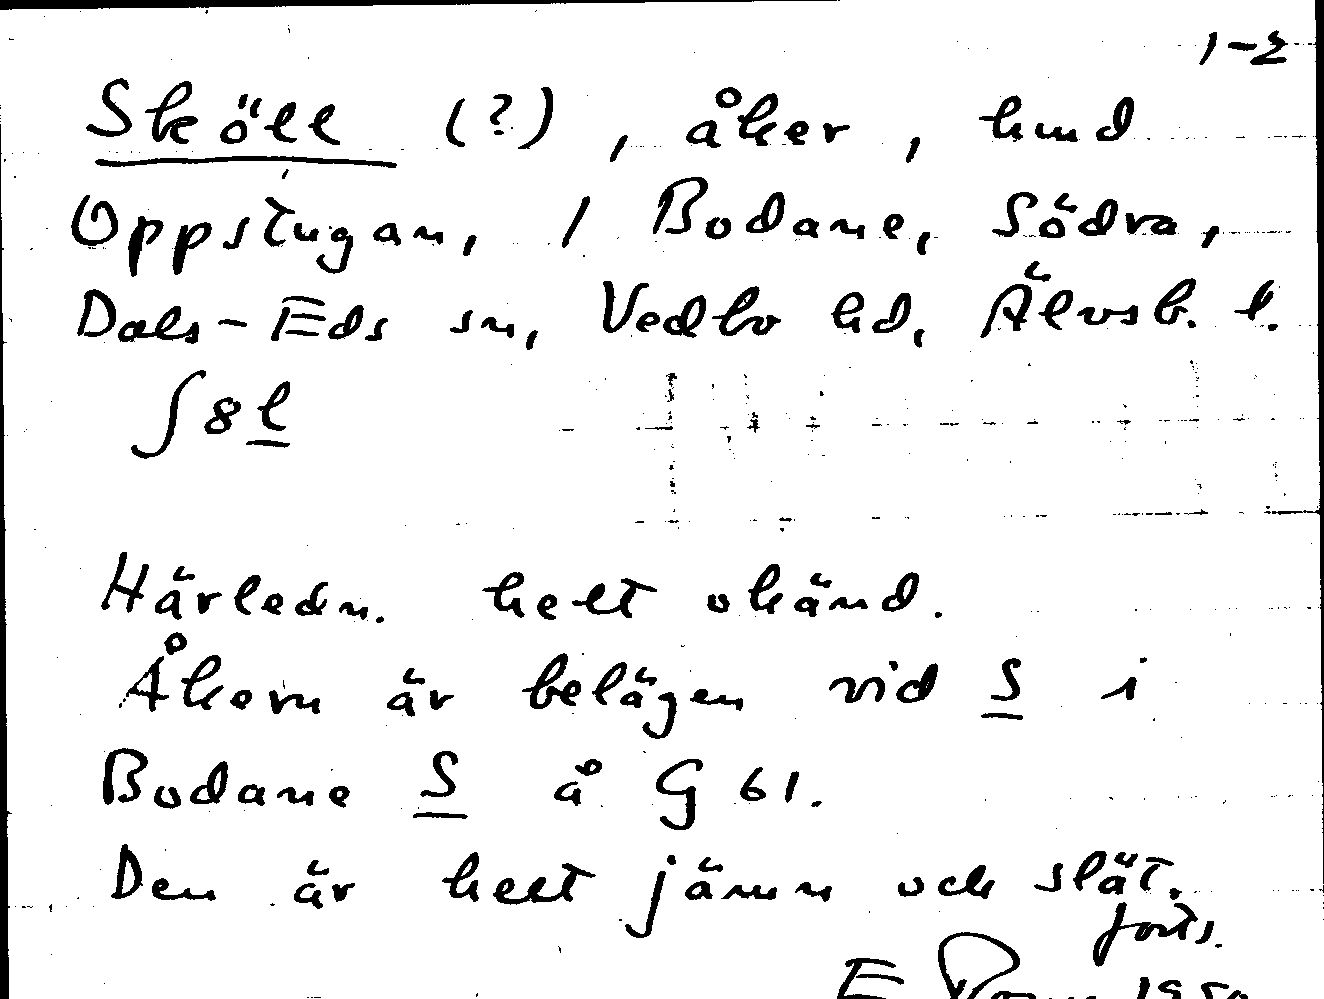 1-2
Sköll (?), åker, hmd
Oppstugan, 1 Bodane, Södra,
Dals-Eds sn, Vedbo hd, Älvsb. l.
ʃ8l
Härledn. helt okänd.
Åkern är belägen vid S i
Bodane S å G 61.
Den är helt jämn och slät.
forts.
E